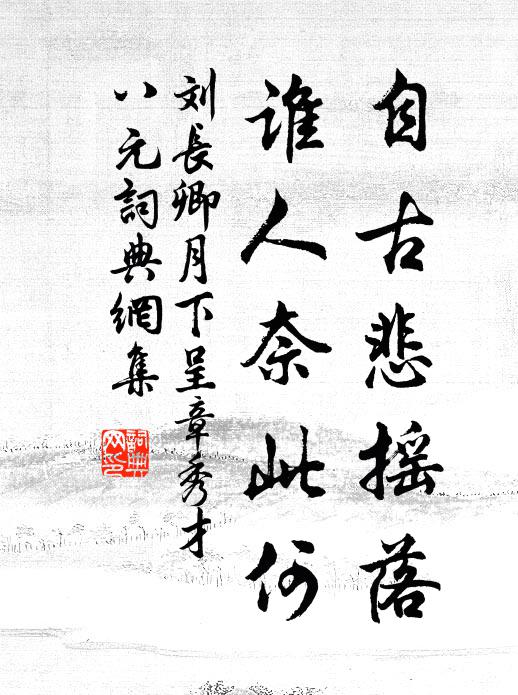 自古悲摇落
谁人奈此何
刘長卿月下呈章秀才
八元詞典網集
詞典
网印